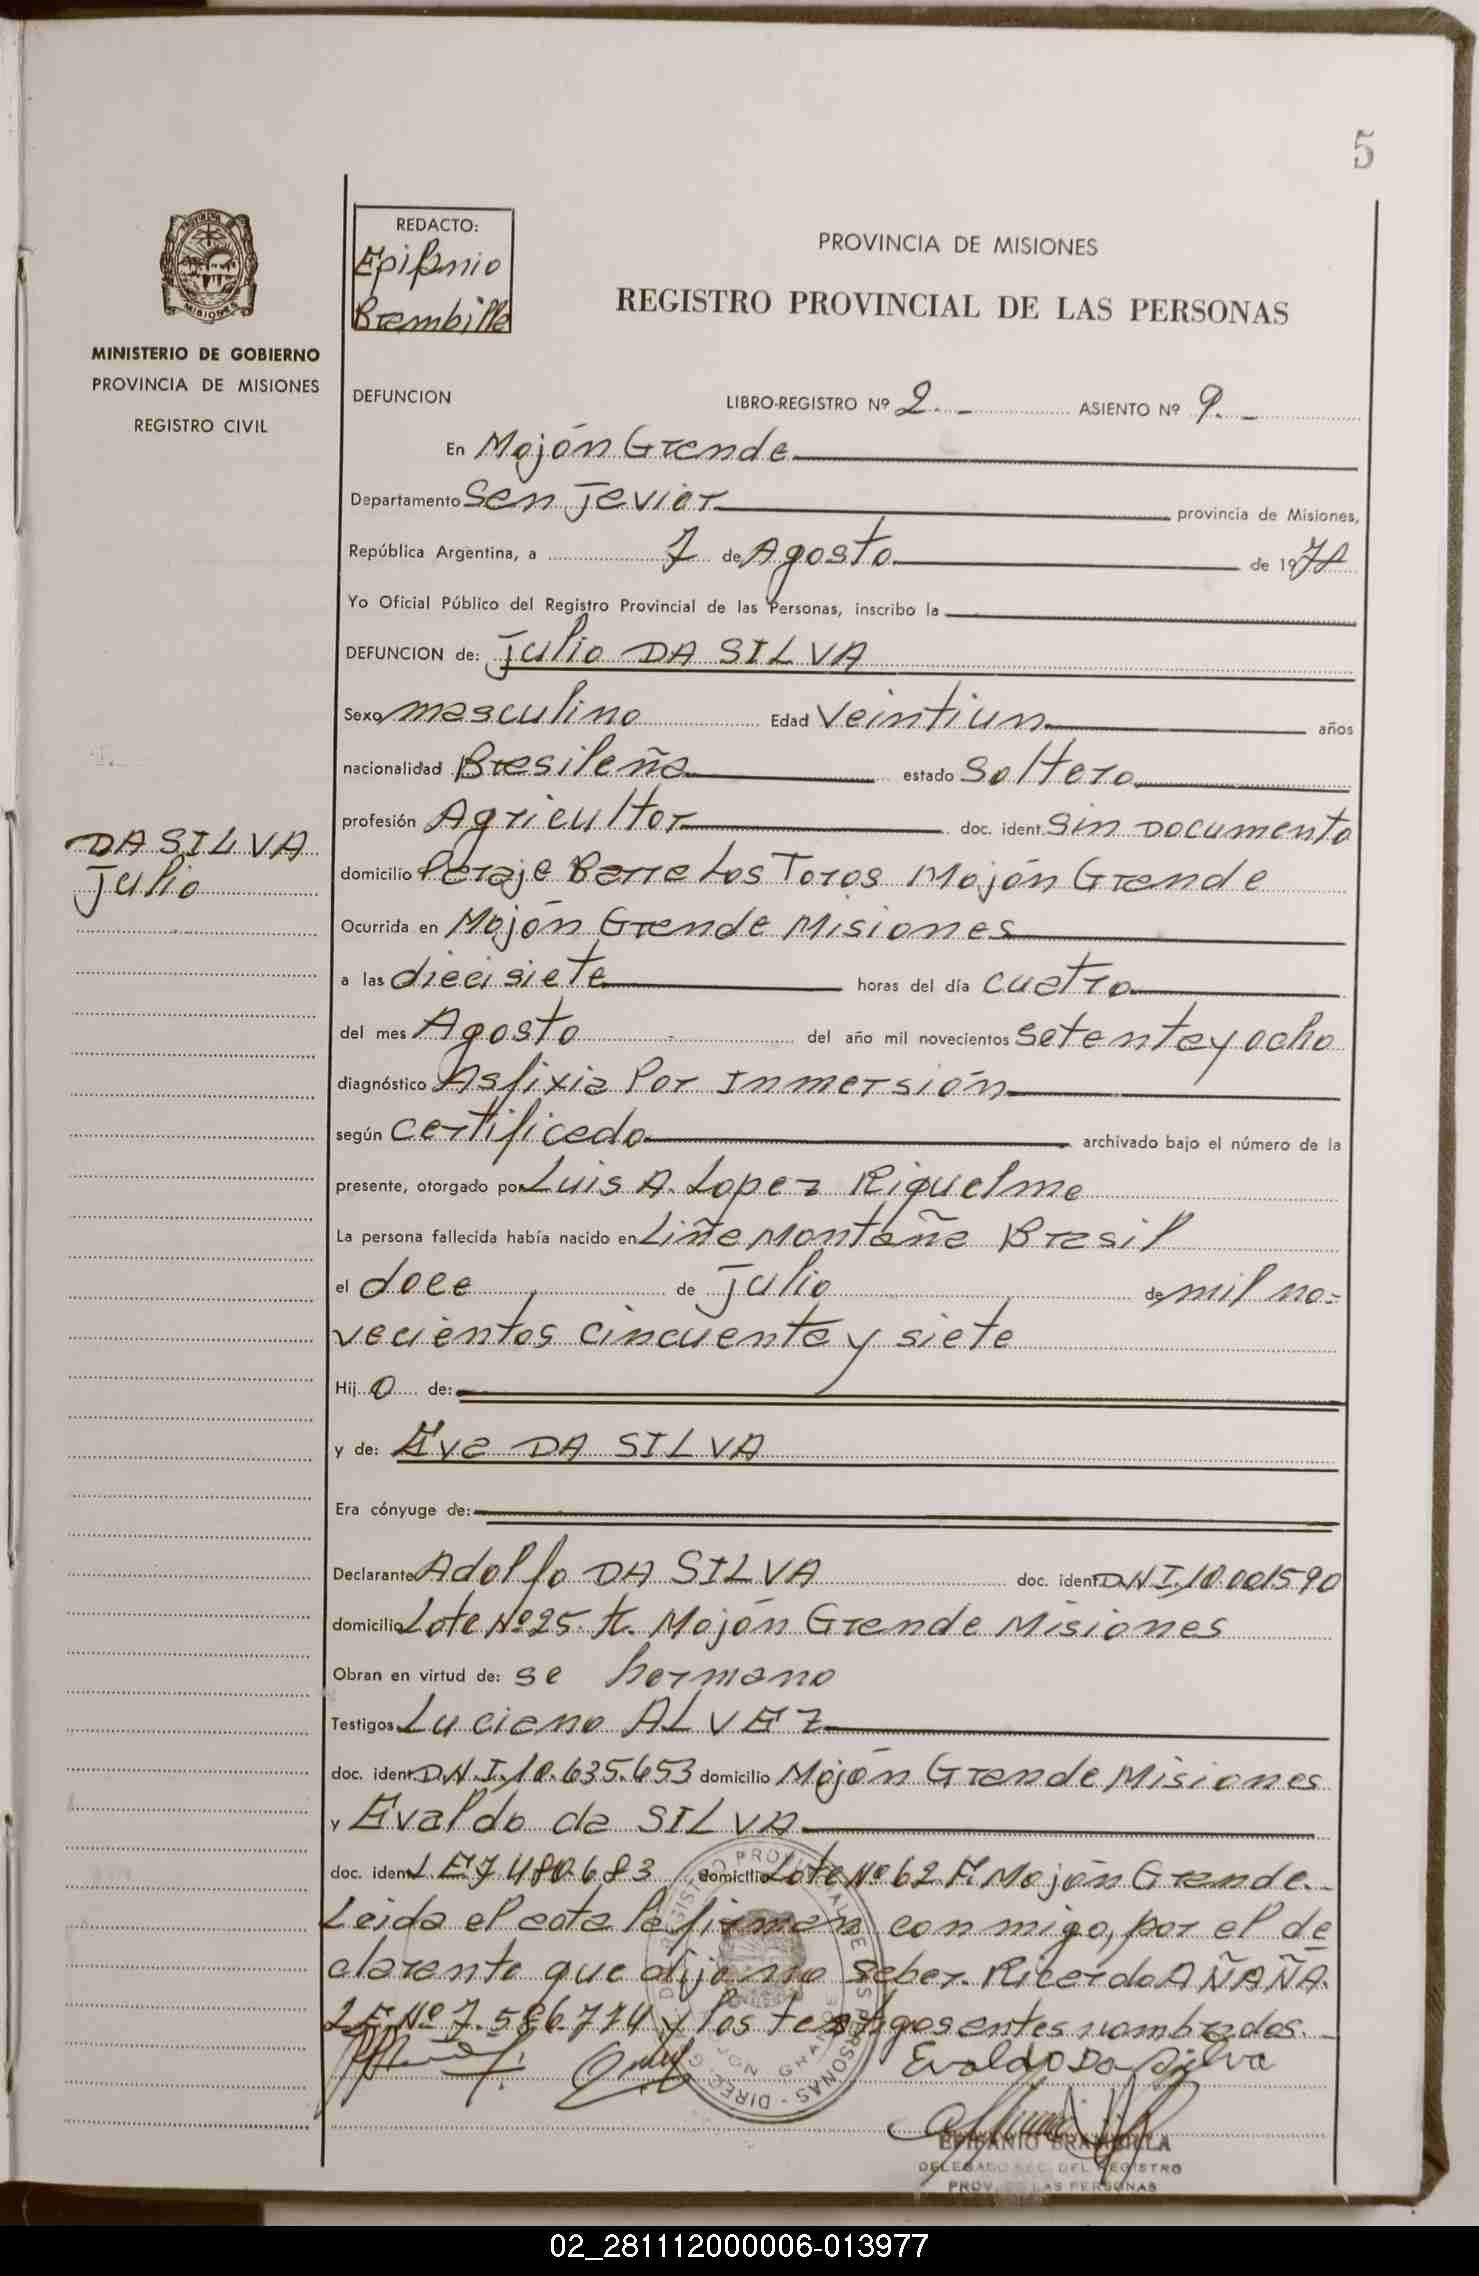 5
REDACTO:
Epifanio
Brambilla
PROVINCIA DE MISIONES
REGISTRO PROVINCIAL DE LAS PERSONAS
MINISTERIO DE GOBIERNO
PROVINCIA DE MISIONES
REGISTRO CIVIL
DEFUNCION LIBRO-REGISTRO Nº 2.- ASIENTO Nº 9.-
En Mojón Grande
Departamento San Javier provincia de Misiones,
República Argentina, a 7 de Agosto de 1978
Yo Oficial Público del Registro Provincial de las Personas, inscribo la
DEFUNCION de: Julio DA SILVA
Sexo masculino Edad Veintiun años
nacionalidad Brasileña estado Soltero
profesión Agricultor doc. ident. Sin Documento
DA SILVA
Julio
domicilio Paraje Barra Los Toros Mojón Grande
Ocurrida en Mojón Grande Misiones
a las diecisiete horas del día cuatro
del mes Agosto del año mil novecientos setenta y ocho
diagnóstico Asfixia Por Inmersión
según certificado archivado bajo el número de la
presente, otorgado por Luis A. Lopez Riquelme
La persona fallecida había nacido en Liña Montaña Brasil
el doce de Julio de mil no-
vecientos cincuenta y siete
Hij o de:
y de: Eva DA SILVA
Era cónyuge de:
Declarante Adolfo DA SILVA doc. ident. D.N.I. 10.001590
domicilio Lote Nº 25 Mojón Grande Misiones
Obran en virtud de: se hermano
Testigos Luciano ALVEZ
doc. ident. D.N.I. 10.635.653 domicilio Mojón Grande Misiones
y Evaldo da SILVA
doc. ident. L.E 7.480.683 domicilio Lote Nº 62 Mojón Grande.-
Leida el acta la firman conmigo, por el de
clarante que dijo no saber. Ricardo AÑAÑA.
L.E. Nº 7.586.774 y los testigos antes nombrados.-
Evaldo Da Silva
EPIFANIO BRAMBILLA
DELEGADO SEC. DEL REGISTRO
PROV. DE LAS PERSONAS
02_281112000006-013977